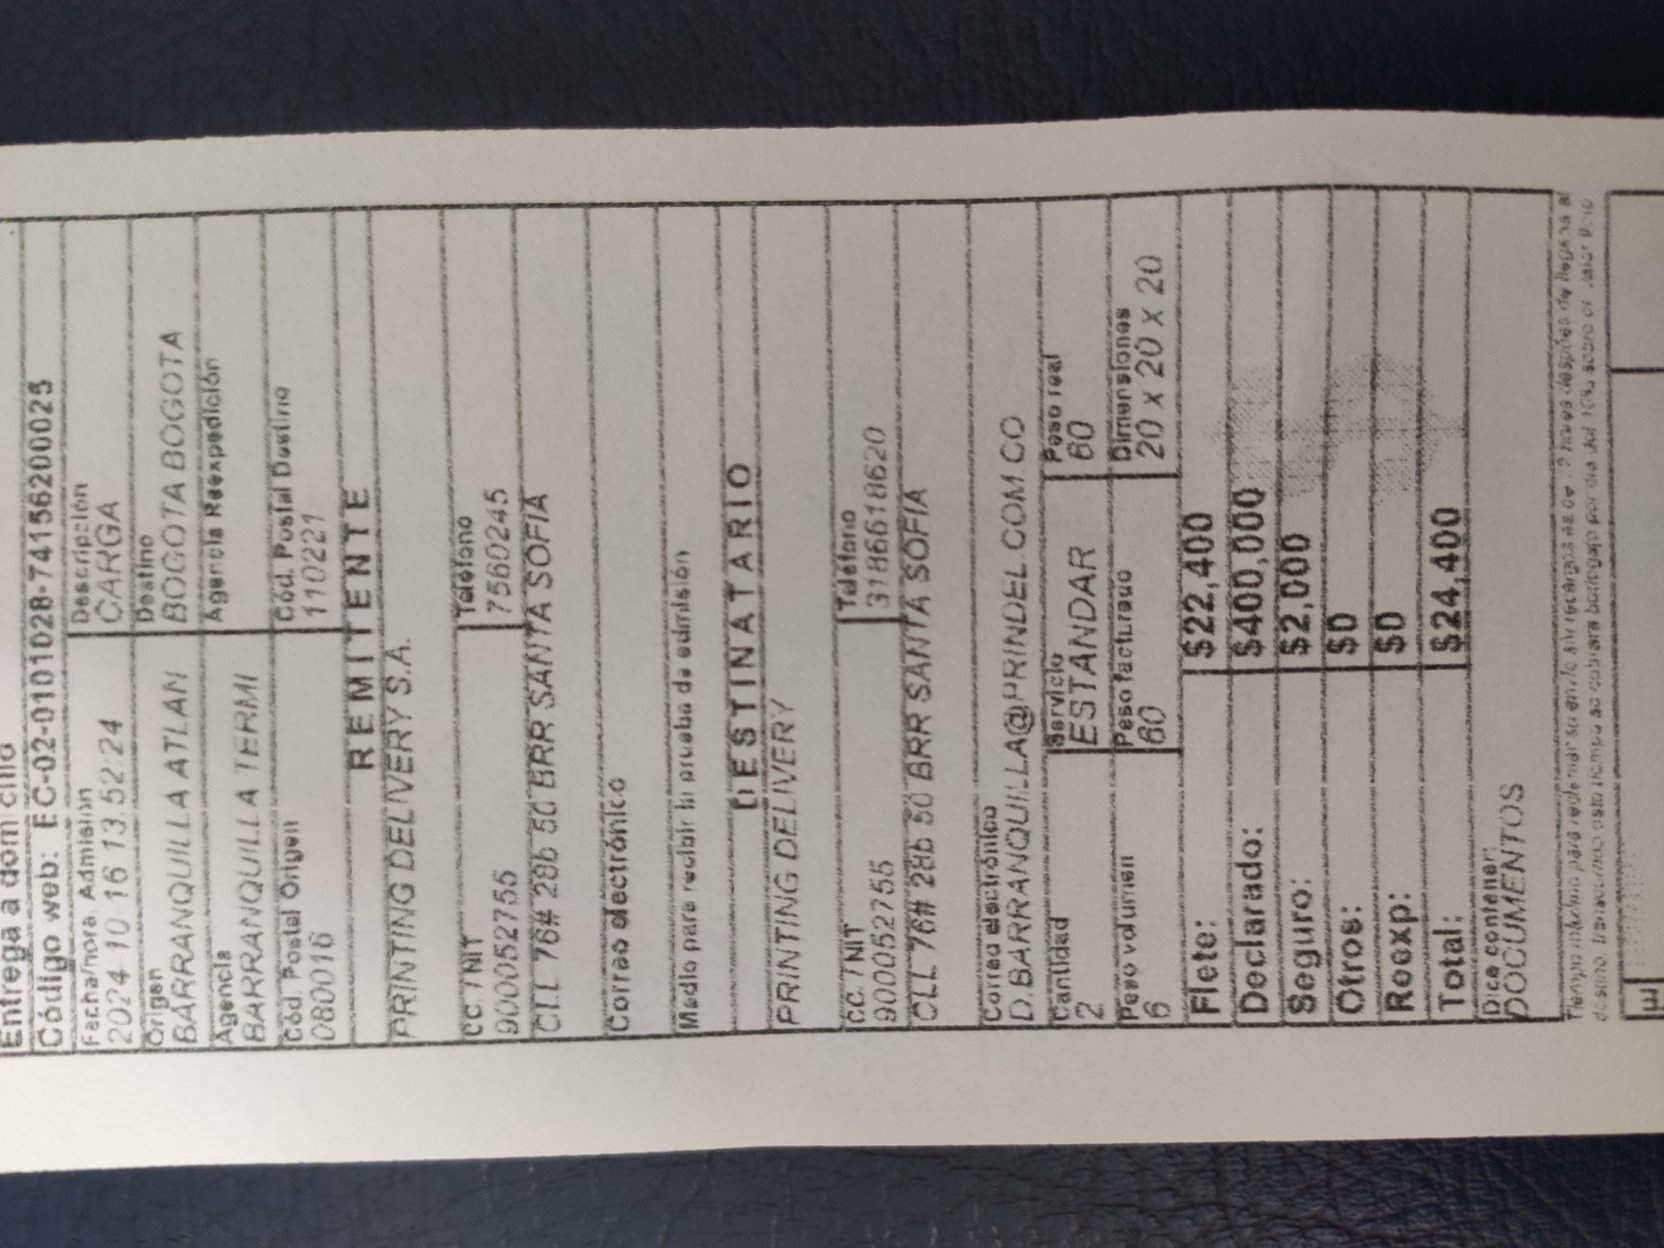 Entrega a domicilio
Código web: EC-02-0101028-74156200025
Fecha/hora Admisión Descripción
2024-10-16 13:52:24 CARGA
Origen Destino
BARRANQUILLA ATLAN BOGOTA BOGOTA
Agencia Agencia Reexpedición
BARRANQUILLA TERMI
Cód. Postal Origen Cód. Postal Destino
080016 110221
REMITENTE
PRINTING DELIVERY S.A.
CC. / NIT Teléfono
900052755 7560245
CLL 76# 28b 50 BRR SANTA SOFIA
Correo electrónico
Medio para recibir la prueba de admisión
DESTINATARIO
PRINTING DELIVERY
CC. / NIT Teléfono
900052755 3186618620
CLL 76# 28b 50 BRR SANTA SOFIA
Correo electrónico
D.BARRANQUILLA@PRINDEL.COM.CO
Cantidad Servicio Peso real
2 ESTANDAR 60
Peso volumen Peso facturado Dimensiones
6 60 20 x 20 x 20
Flete: $22,400
Declarado: $400,000
Seguro: $2,000
Otros: $0
Reexp: $0
Total: $24,400
Dice contener:
DOCUMENTOS
Tiempo máximo para reclamar su envío sin recargos es de después de llegada al
destino, transcurrido este tiempo se cobrara bodegaje por día del 10% sobre el valor flete